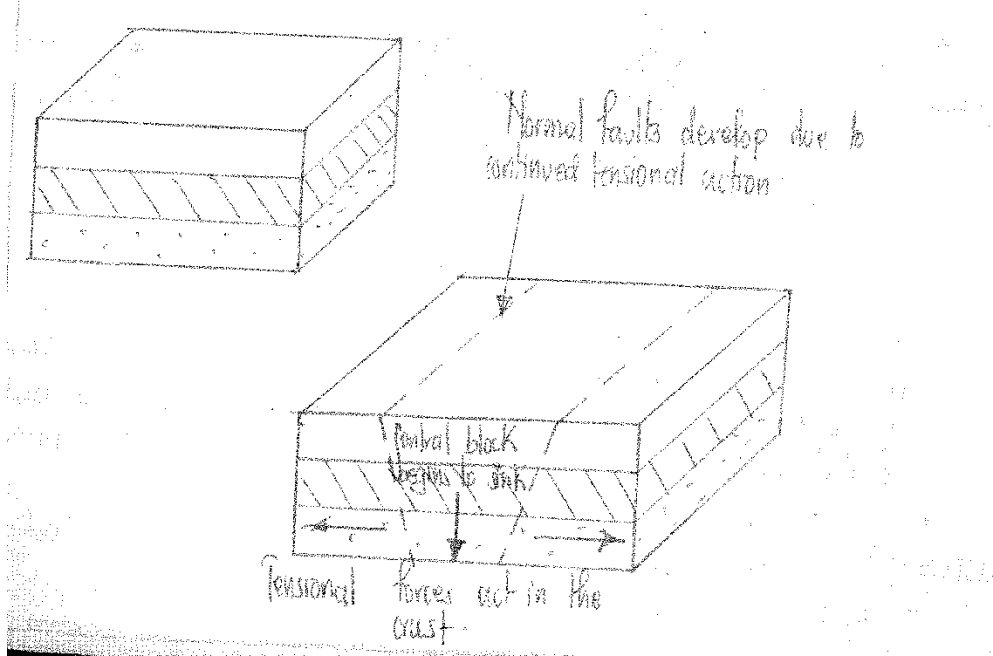 Normal faults develop due to
continued tensional action
Central block
begins to sink
Tensional forces act in the
crust.